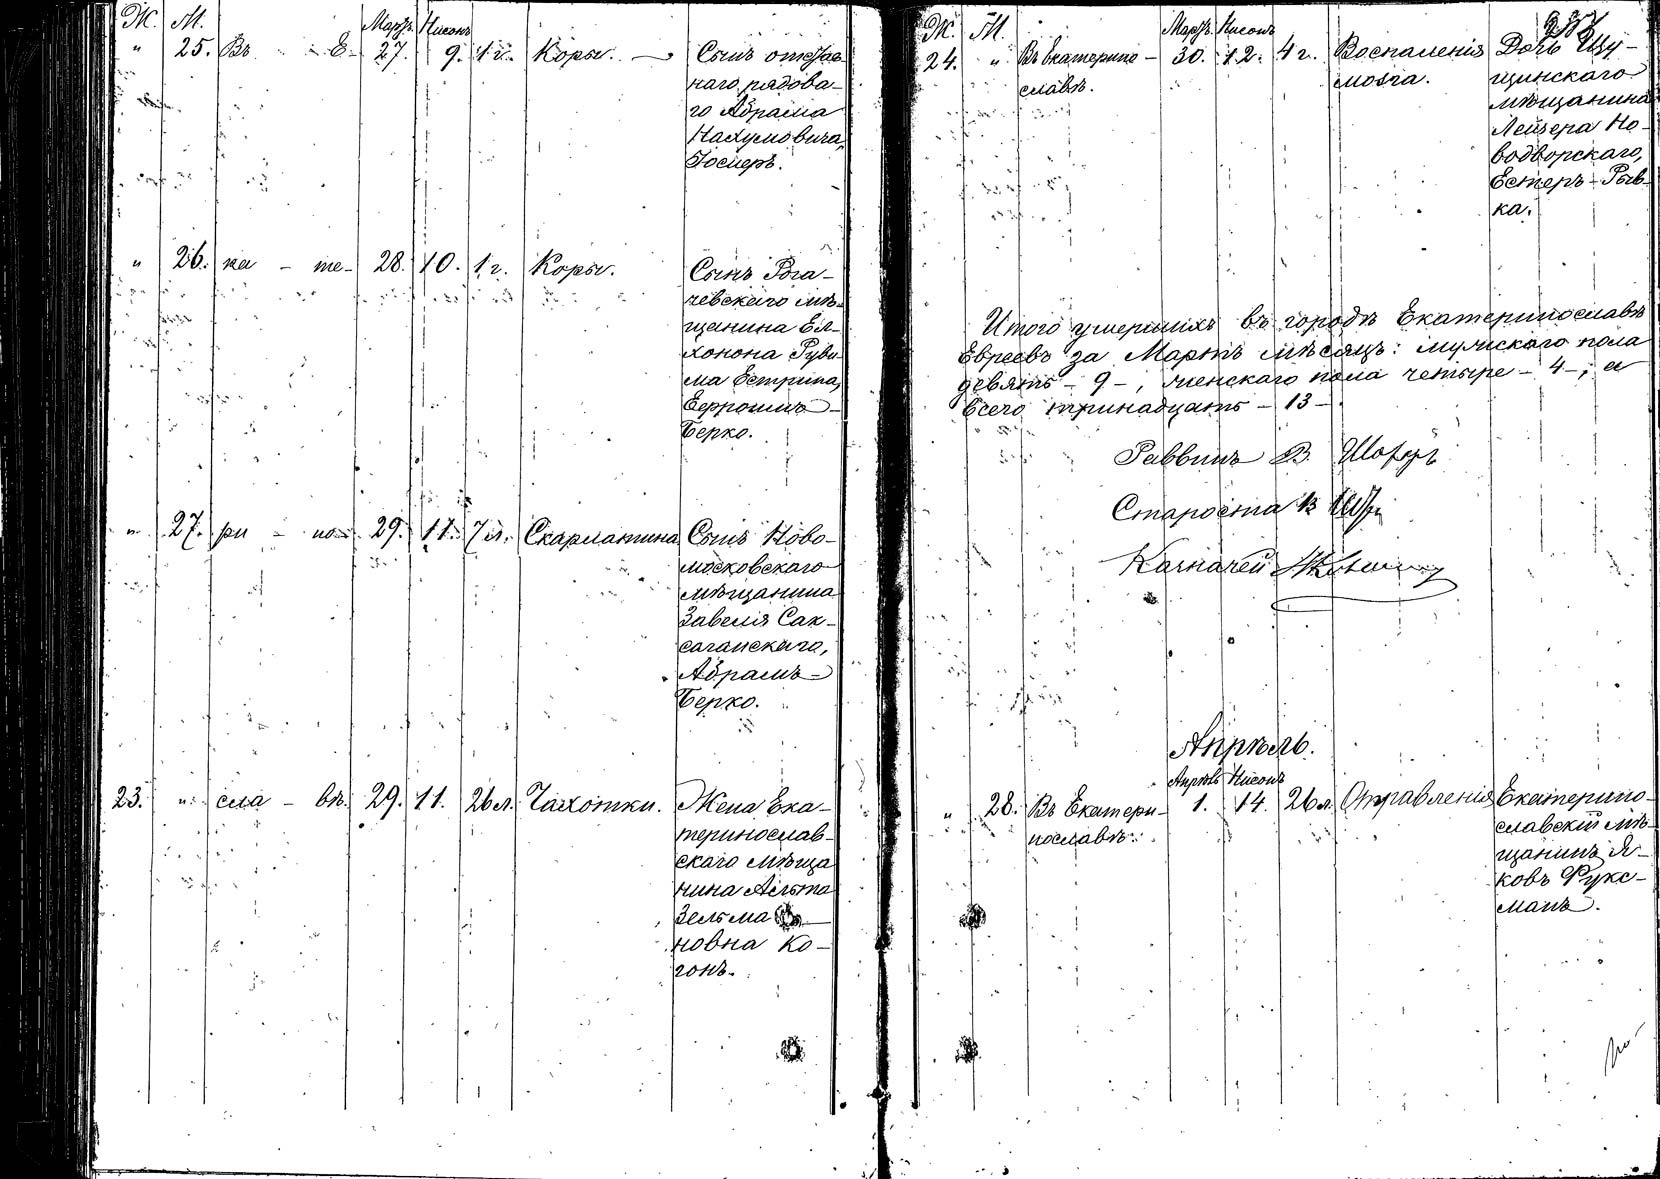 Ж. М. Мартъ. Нисонъ
" 25. Въ - Е- 27. 9. 1 г. Коры. Сынъ отстав-
наго рядова-
го Абрама
Нахумовича,
Іосперъ.
" 26. ка - те- 28. 10. 1 г. Коры. Сынъ Рога-
чевскаго мѣ-
щанина Ел-
хонона Руви-
ма Естрина,
Берко.
" 27. ри - но- 29. 11. 7 л. Скарлатина Сынъ Ново-
московскаго
мѣщанина
Завеля Сак-
саганскаго,
Абрамъ-
Берко.
23. " сла - вѣ. 29. 11. 26 л. Чахотки. Жена Ека-
теринослав-
скаго мѣща
нина
Зельма
новна Ко-
гонъ.
Ж. М. Мартъ. Нисонъ
24. " Въ Екатерино- 30. 12. 4 г. Воспаленія Дочь Щу-
славѣ. мозга. щинскаго
мѣщанина
Лейзера Но-
водворскаго,
Естеръ-Рыв-
ка.
Итого умершихъ въ городѣ Екатеринославѣ
Евреевъ за Мартъ мѣсяцъ: мужскаго пола
девять - 9 -, женскаго пола четыре - 4 -, а
всего тринадцать - 13 -.
Раввинъ В. Шоръ
Староста
Казначей
Апрѣль.
Апрѣль Нисонъ
" 28. Въ Екатери- 1. 14. 26 л. Отравленія Екатерино-
нославѣ. славскій мѣ-
щанинъ Я-
ковъ Фукс-
манъ.